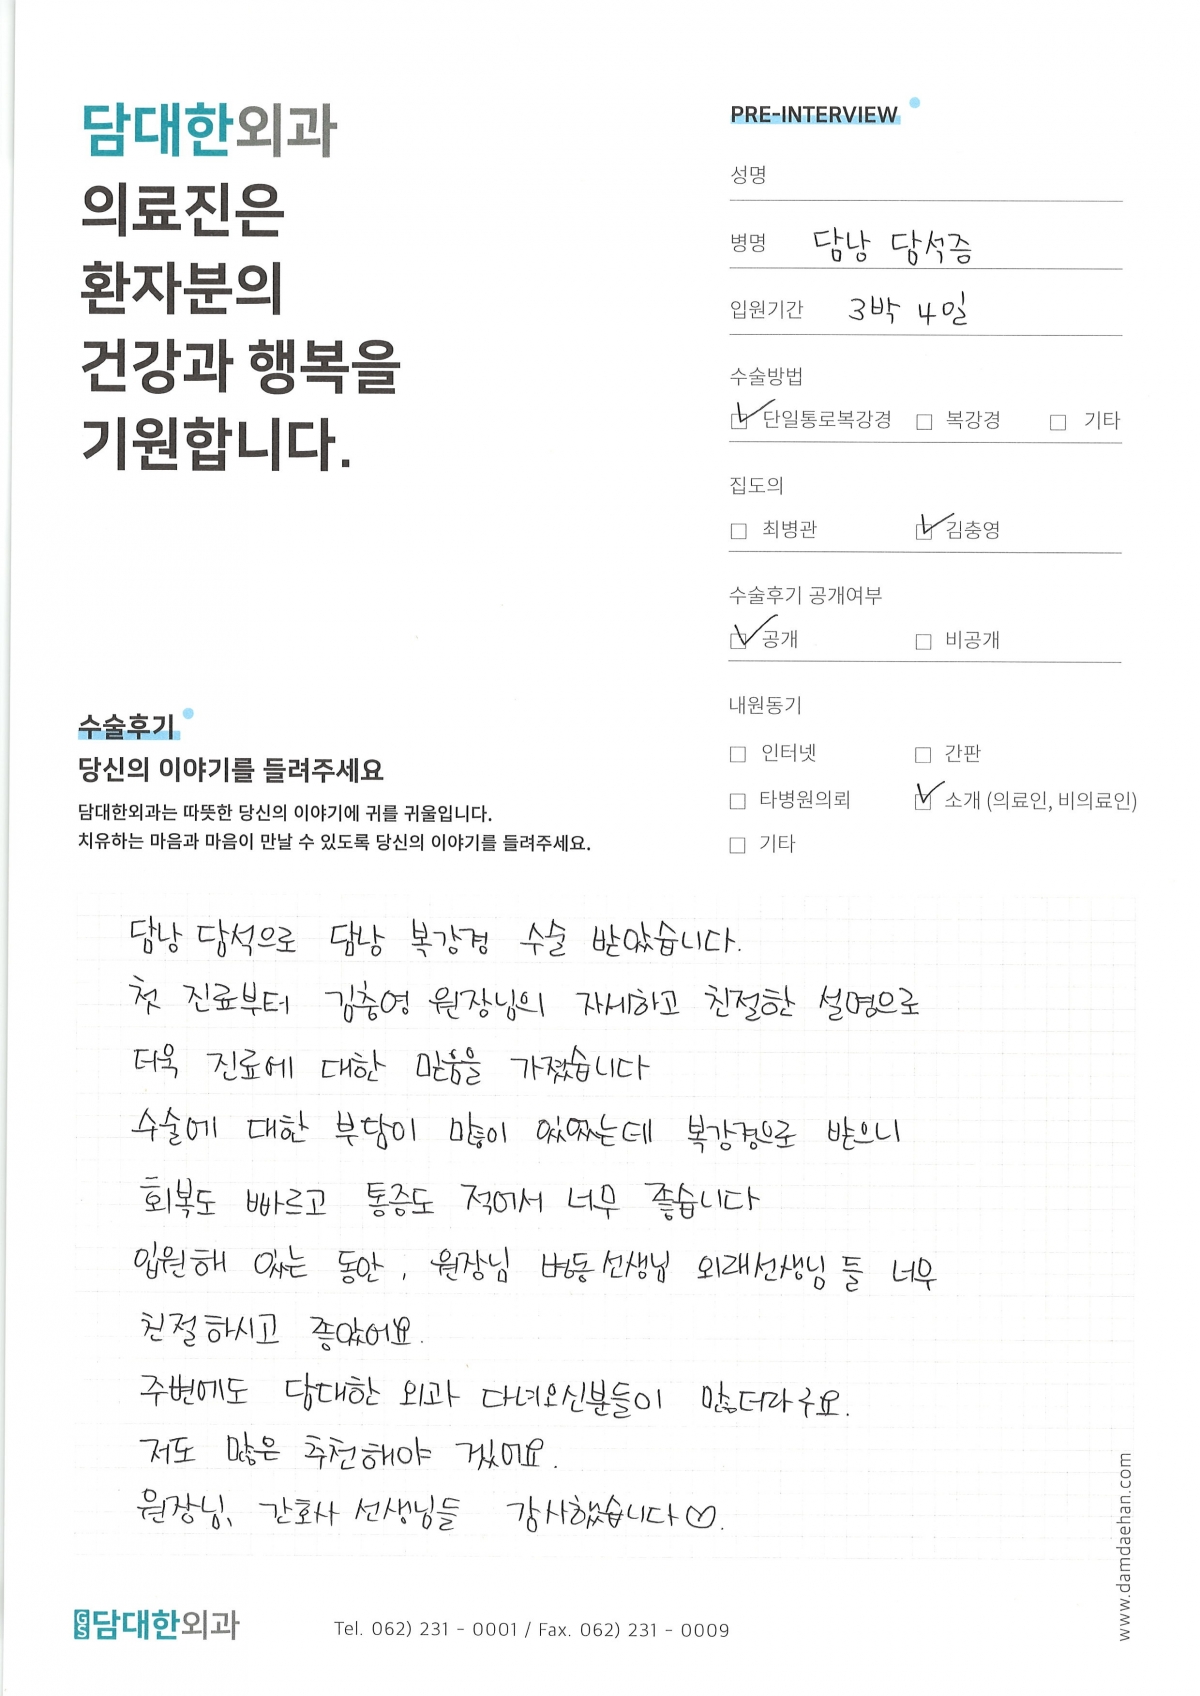 담대한외과
의료진은
환자분의
건강과 행복을
기원합니다.
PRE-INTERVIEW
성명
병명 담낭 담석증
입원기간 3박 4일
수술방법
단일통로복강경 복강경 기타
집도의
최병관 김충영
수술후기 공개여부
공개 비공개
내원동기
인터넷 간판
타병원의뢰 소개 (의료인, 비의료인)
기타
수술후기
당신의 이야기를 들려주세요
담대한외과는 따뜻한 당신의 이야기에 귀를 귀울입니다.
치유하는 마음과 마음이 만날 수 있도록 당신의 이야기를 들려주세요.
담낭 담석으로 담낭 복강경 수술 받았습니다.
첫 진료부터 김충영 원장님의 자세하고 친절한 설명으로
더욱 진료에 대한 믿음을 가졌습니다
수술에 대한 부담이 많이 있었는데 복강경으로 받으니
회복도 빠르고 통증도 적어서 너무 좋습니다
입원해 있는 동안, 원장님 병동선생님 외래선생님들 너무
친절하시고 좋았어요.
주변에도 담대한 외과 다녀오신분들이 많더라구요.
저도 많은 추천해야 겠어요.
원장님, 간호사 선생님들 감사했습니다♡.
GS 담대한외과
Tel. 062) 231 - 0001 / Fax. 062) 231 - 0009
www.damdaehan.com